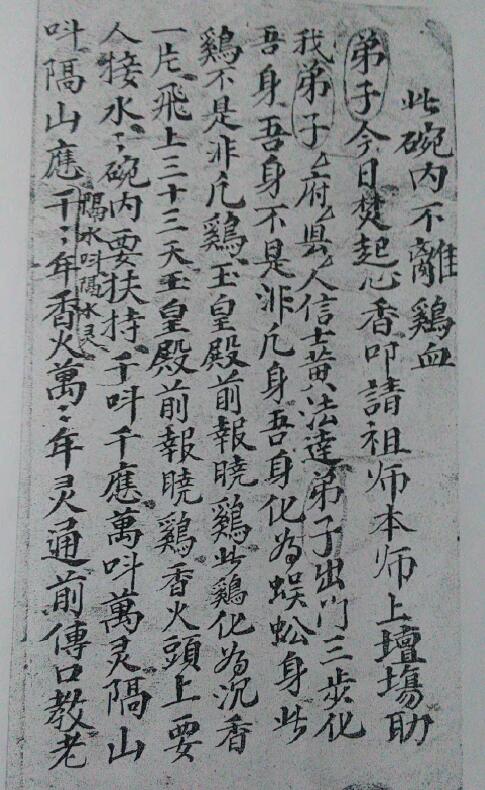 此碗内不離鷄血
弟子今日焚起心香叩請祖师本师上壇塲助
我弟子乜府乜县乜人信士黄法達弟子出门三步化
吾身吾身不是非凡身吾身化为蜈蚣身此
鷄不是非凡鷄玉皇殿前報曉鷄此鷄化为沉香
一片飛上三十三天玉皇殿前報曉鷄香火頭上要
人接水〻碗内要扶持千呌千應萬呌萬灵隔山
隔水呌隔水灵
呌隔山應千〻年香火萬〻年灵通前傳口教老